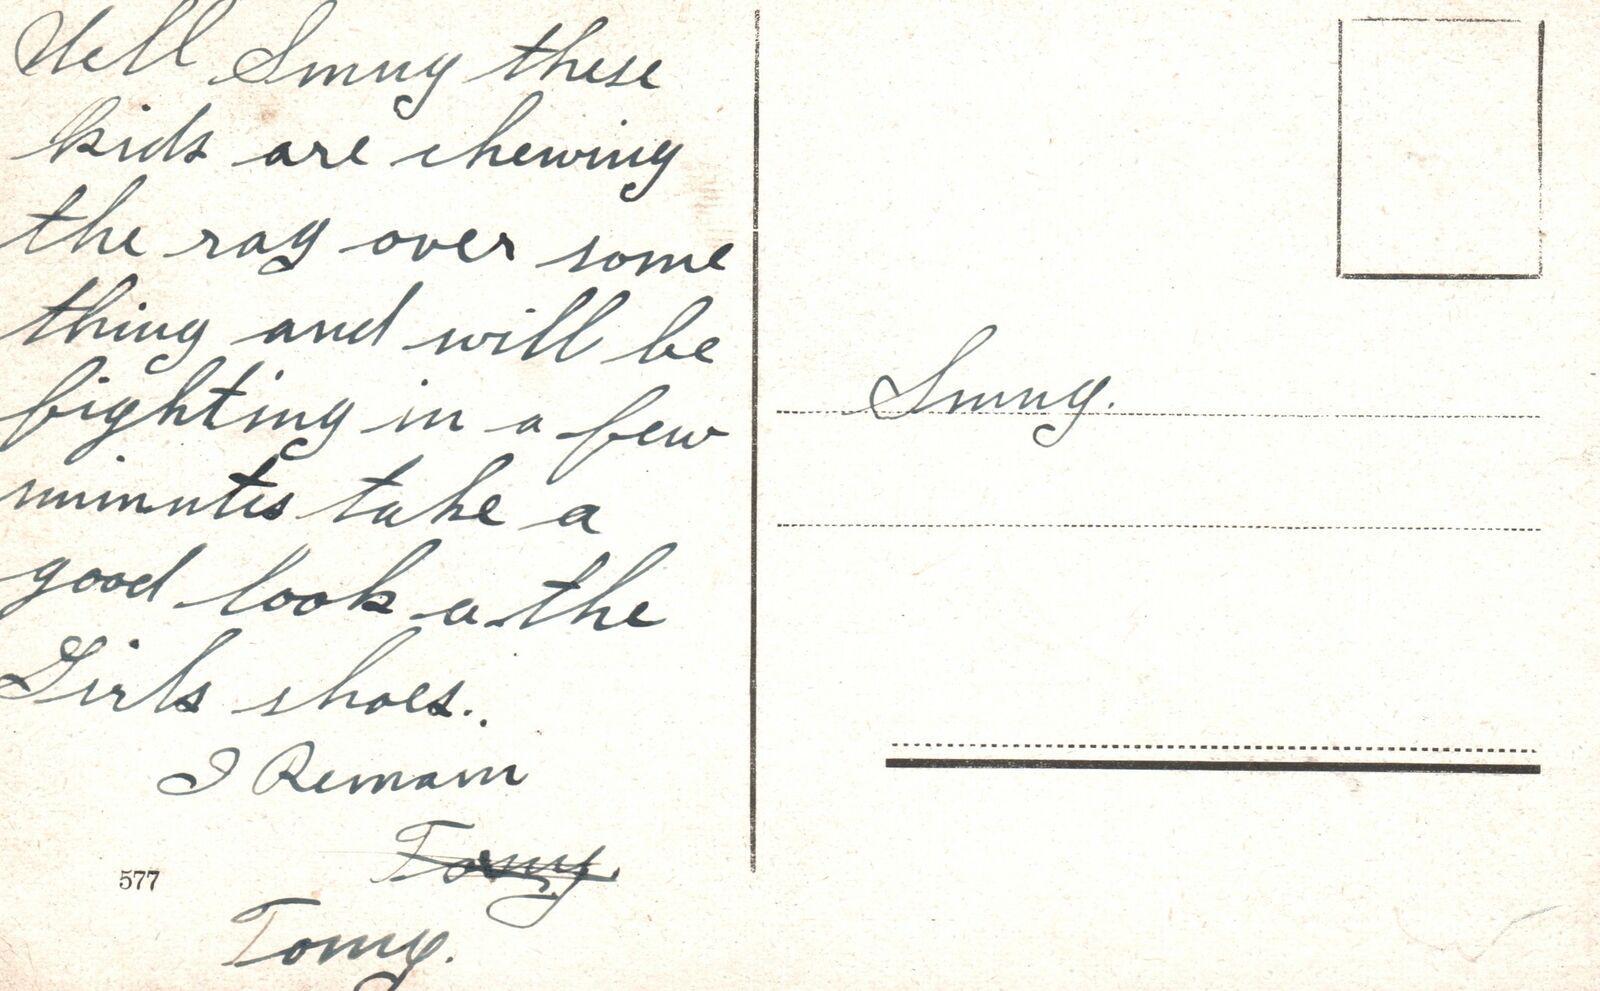 Well Smug these
kids are chewing
the rag over some
thing and will be
fighting in a few
minutes take a
good look a the
Girls shoes..
I Remain
Tomy.
Tomy.
577
Smug.